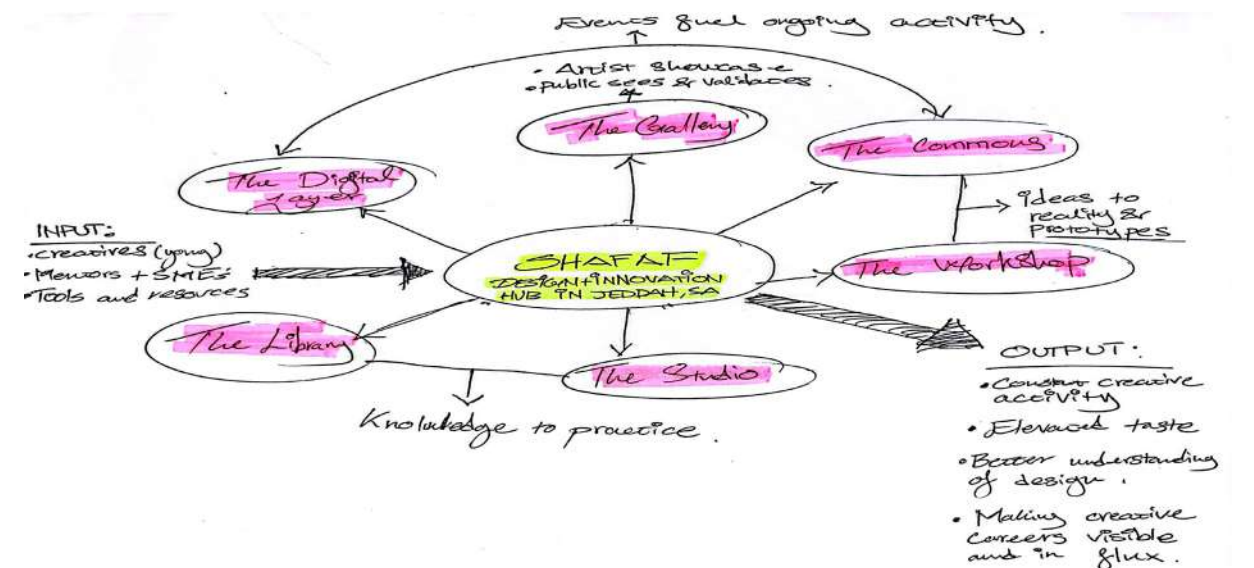 Events fuel ongoing activity.
• Artist showcase
• public sees & validates
The Gallery
The Commons
The Digital
Layer
→ ideas to
reality &
prototypes
INPUT:
• creatives (young)
• Mentors + SMEs
• Tools and resources
SHAFAF
DESIGN+INNOVATION
HUB IN JEDDAH, SA
The Workshop
The Library
The Studio
Knowledge to practice.
OUTPUT:
• Constant creative
activity
• Elevated taste
• Better understanding
of design.
• Making creative
careers visible
and in flux.